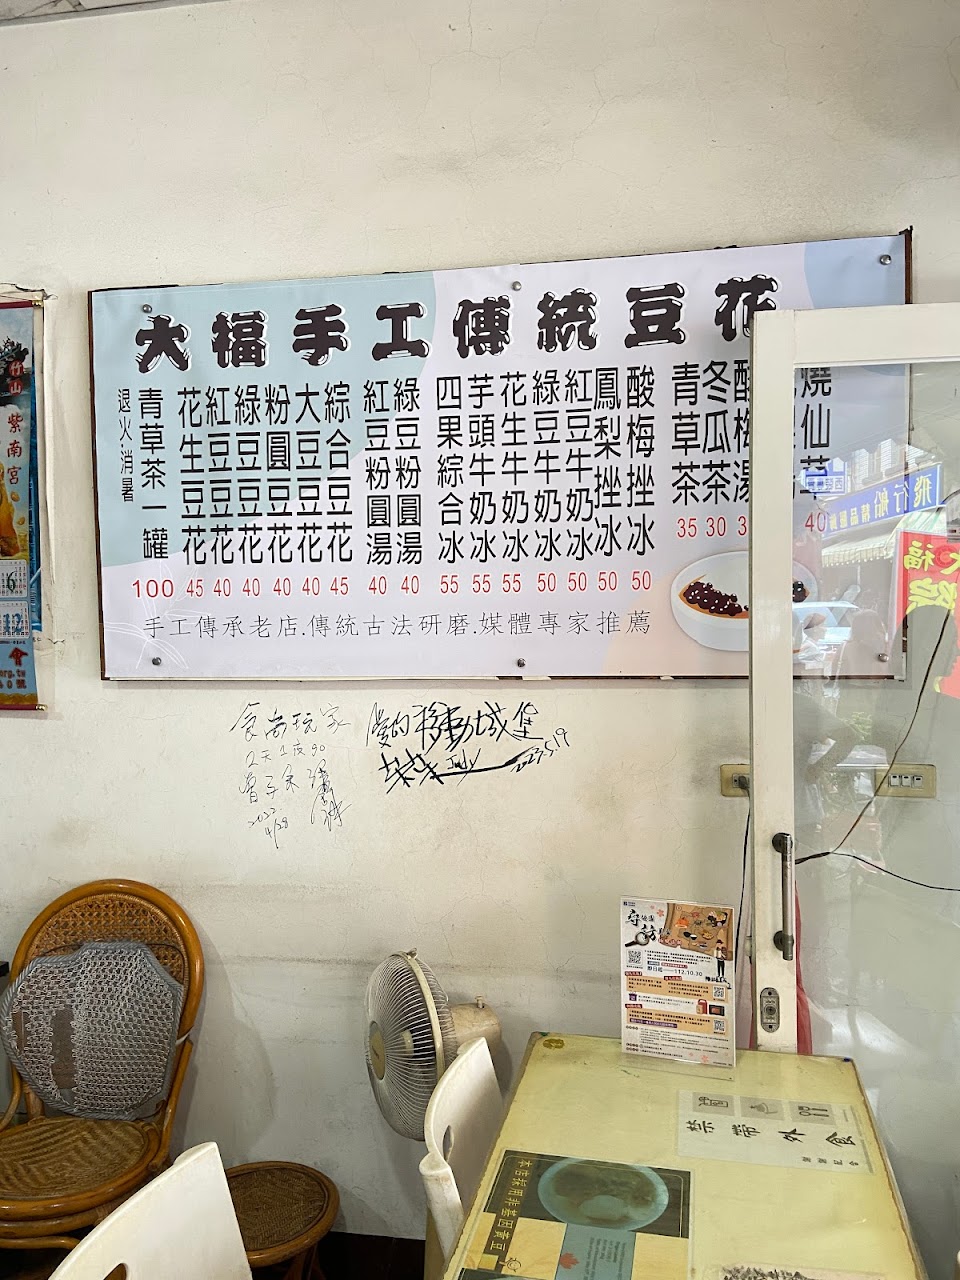 大福手工傳統豆花
退火消暑
青草茶一罐 100
花生豆花 45
紅豆豆花 40
綠豆豆花 40
粉圓豆花 40
大豆豆花 40
綜合豆花 45
紅豆粉圓湯 40
綠豆粉圓湯 40
四果綜合冰 55
芋頭牛奶冰 55
花生牛奶冰 55
綠豆牛奶冰 50
紅豆牛奶冰 50
鳳梨挫冰 50
酸梅挫冰 50
青草茶 35
冬瓜茶 30
酸梅湯 3
燒仙草 40
手工傳承老店.傳統古法研磨.媒體專家推薦
食尚玩家
2天1夜go
2022
4/28
愛的移動城堡
Judy
2023.5.19
竹山
紫南宮
6
飛行船精品服飾
大福
即日起
112.10.30
禁帶外食
本店採用非基因黃豆